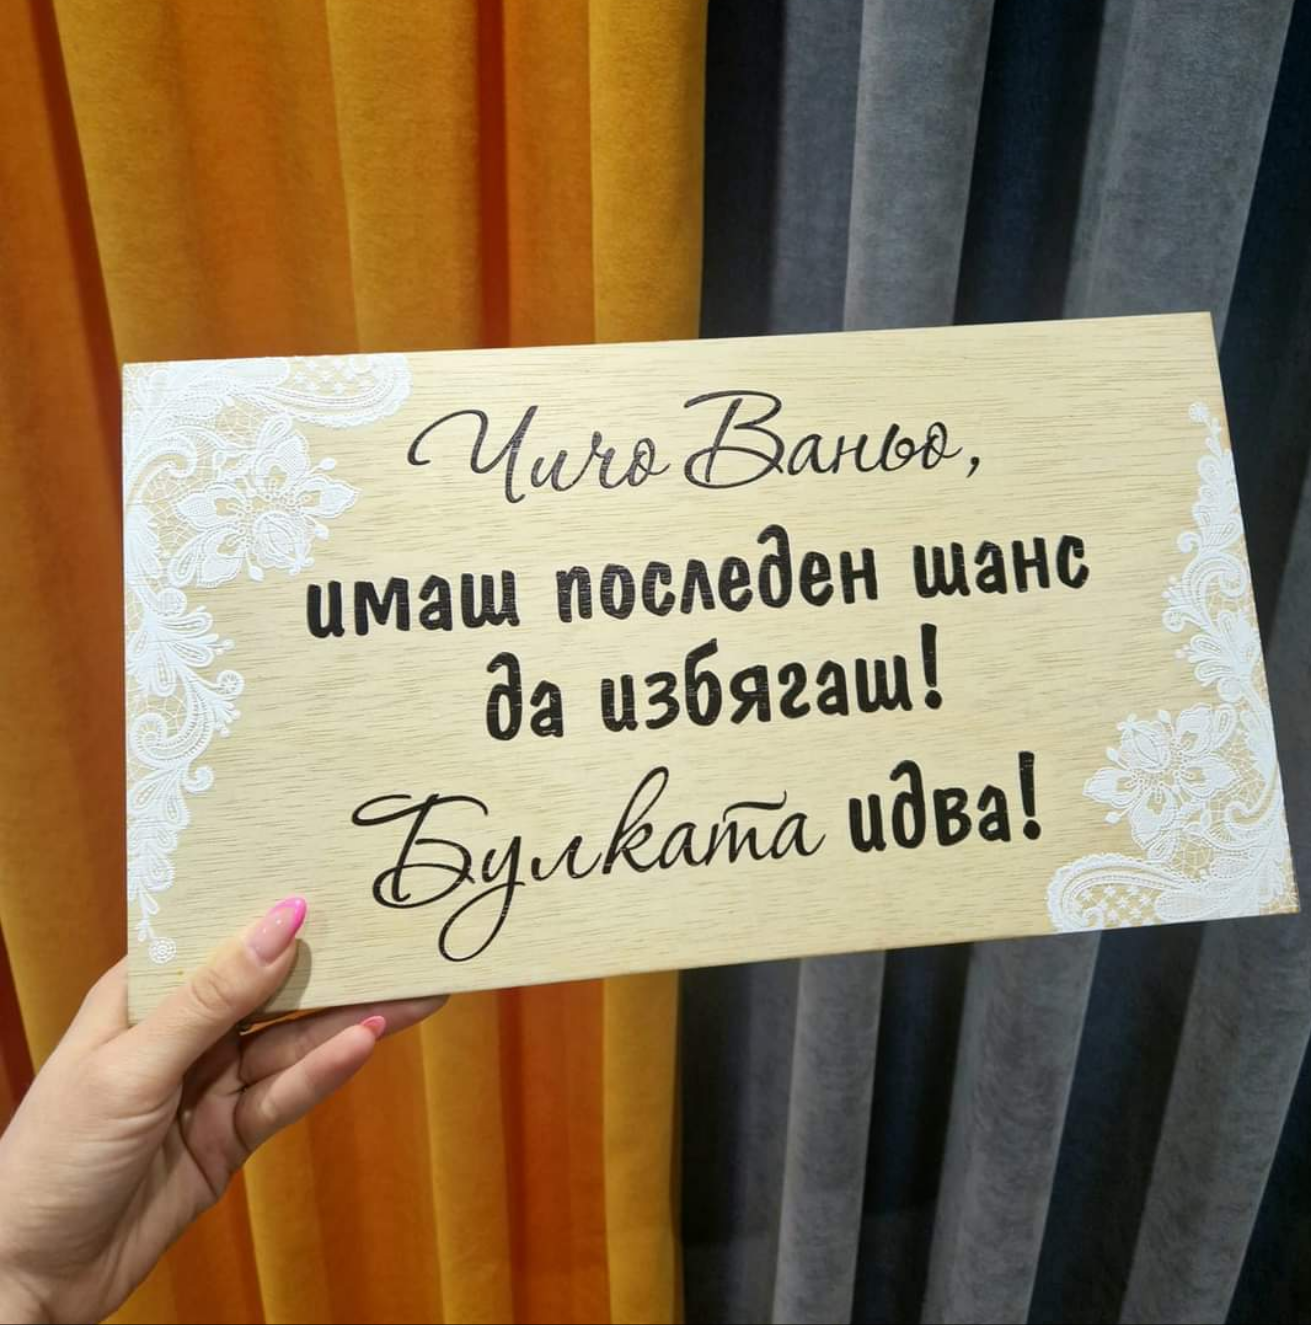 Чичо Ваньо,
имаш последен шанс
да избягаш!
Булката идва!